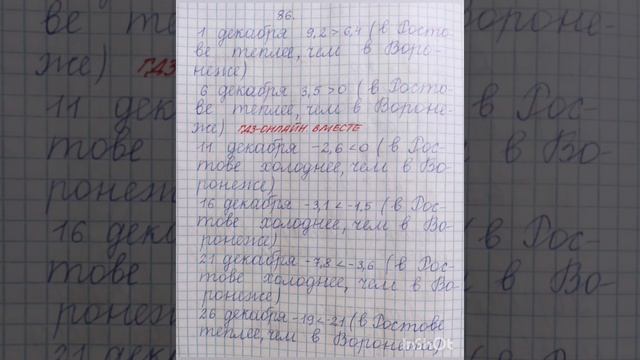 86.
1 декабря 9,2 > 6,4 (в Росто-
ве теплее, чем в Воро-
неже)
6 декабря 3,5 > 0 (в Росто-
ве теплее, чем в Вороне-
же) ГДЗ-ОНЛАЙН. ВМЕСТЕ
11 декабря -2,6 < 0 (в Рос-
тове холоднее, чем в Во-
ронеже)
16 декабря -3,1 < -1,5 (в Рос-
тове холоднее, чем в Во-
ронеже)
21 декабря -7,8 < -3,6 (в Рос-
тове холоднее, чем в Во-
ронеже)
26 декабря -19 < -21 (в Ростове
теплее, чем в Воронеже)